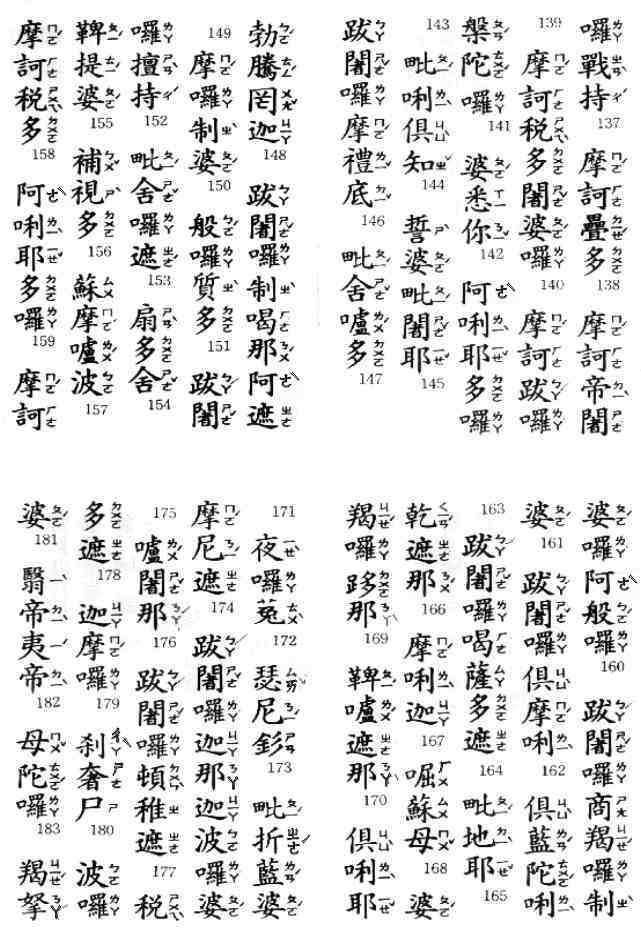 囉戰持 137 摩訶疊多 138 摩訶帝闍
139 摩訶税多闍婆囉 140 摩訶跋囉
槃陀囉 141 婆悉你 142 阿唎耶多囉
143 毗唎俱知 144 誓婆毗闍耶 145
跋闍囉摩禮底 146 毗舍嚧多 147
勃騰罔迦 148 跋闍囉制喝那阿遮
149 摩囉制婆 150 般囉質多 151 跋闍
囉擅持 152 毗舍囉遮 153 扇多舍 154
鞞提婆 155 補視多 156 蘇摩嚧波 157
摩訶税多 158 阿唎耶多囉 159 摩訶
婆囉阿般囉 160 跋闍囉商羯囉制
婆 161 跋闍囉俱摩唎 162 俱藍陀唎
163 跋闍囉喝薩多遮 164 毗地耶 165
乾遮那 166 摩唎迦 167 啒蘇母 168 婆
羯囉跢那 169 鞞嚧遮那 170 俱唎耶
171 夜囉菟 172 瑟尼釤 173 毗折藍婆
摩尼遮 174 跋闍囉迦那迦波囉婆
175 嚧闍那 176 跋闍囉頓稚遮 177 税
多遮 178 迦摩囉 179 刹奢尸 180 波囉
婆 181 翳帝夷帝 182 母陀囉 183 羯拏